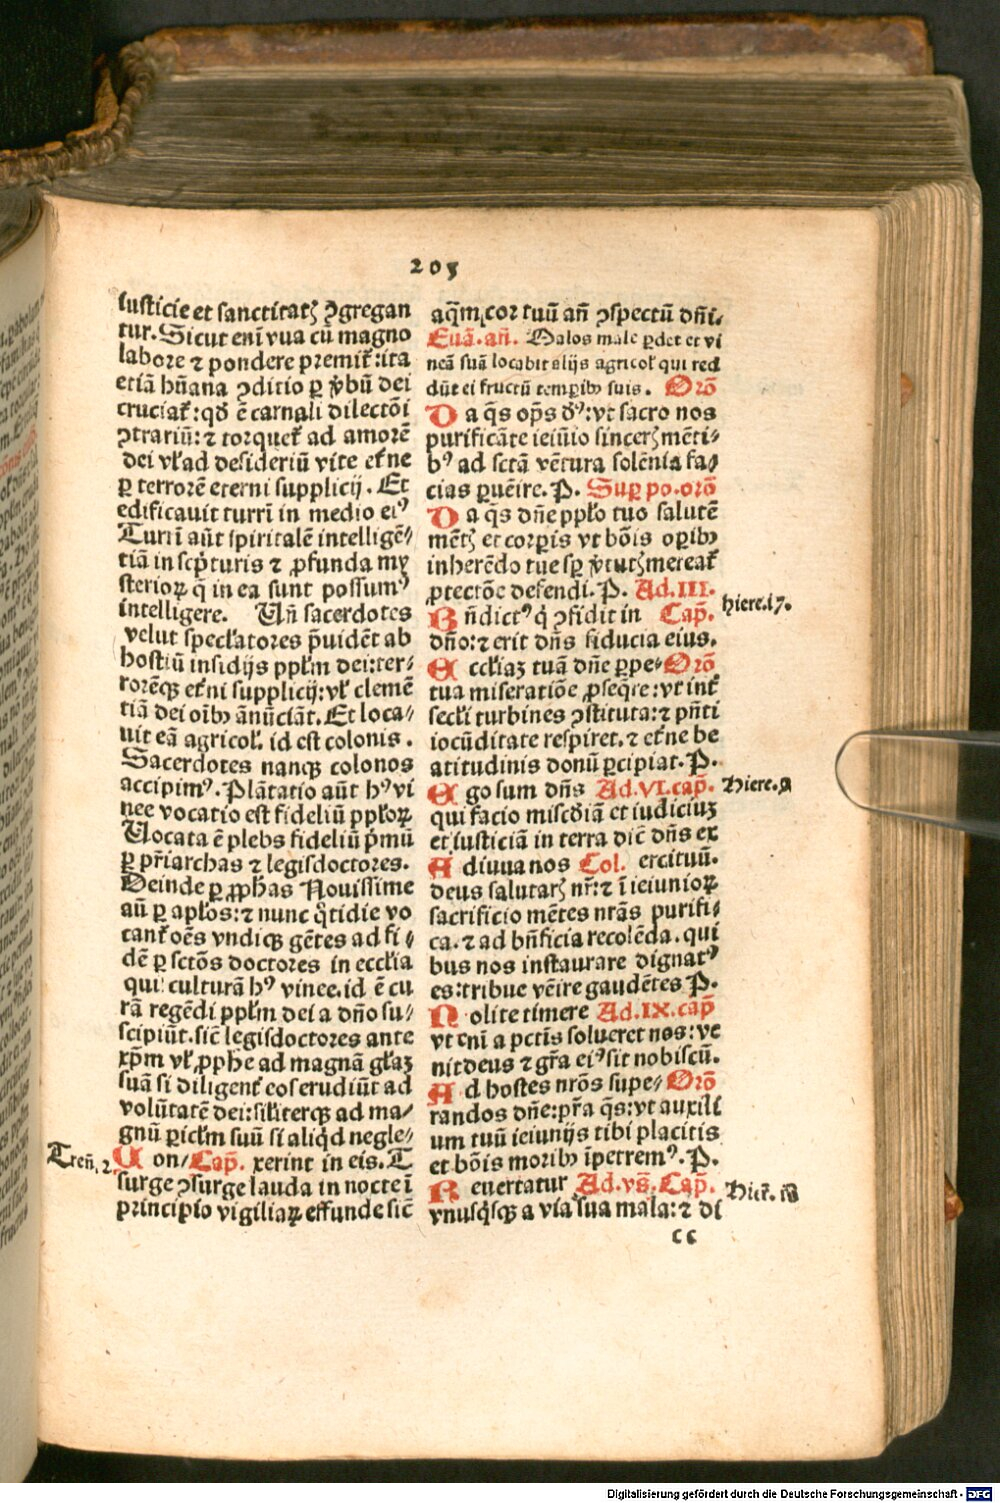 203
iusticie et sanctitatꝫ ꝯgregan
tur. Sicut enī vua cū magno
labore ⁊ pondere premit᷑: ita
etiā hūana ꝯditio ꝑ v̄bū dei
cruciat᷑: qđ ē carnali dilectōi
ꝯtrariū: ⁊ torquet᷑ ad amorē
dei vł ad desideriū vite et᷑ne
ꝑ terrorē eterni supplicij. Et
edificauit turrī in medio eiꝰ
Turrī aūt spiritalē intelligē⸗
tiā in scp̄turis ⁊ ꝓfunda my
sterioꝝ q̄ in ea sunt possumꝰ
intelligere. Uñ sacerdotes
velut specłatores p̄uidēt ab
hostiū insidijs ppłm dei: ter⸗
rorēqꝫ et᷑ni supplicij: vł clemē
tiā dei oībꝫ ānūciāt. Et loca⸗
uit eā agricoł. id est colonis.
Sacerdotes nanqꝫ colonos
accipimꝰ. Plātatio aūt hꝰ vi
nee vocatio est fideliū ppłoꝝ
Uocata ē plebs fideliū p̄mū
ꝑ pr̄iarchas ⁊ legisdoctores.
Deinde ꝑ ꝓphas Nouissime
aū ꝑ apłos: ⁊ nunc q̊tidie vo
cant᷑ oēs vndiqꝫ gētes ad fi⸗
dē ꝑ sctōs doctores in ecclia
qui culturā hꝰ vinee. id ē cu
rā regēdi ppłm dei a dño su⸗
scipiūt. sic̄ legisdoctores ante
xp̄m vł ꝓphe ad magnā głaꝫ
suā si diligent᷑ eos erudiūt ad
volūtatē dei: siłiterqꝫ ad ma⸗
gnū ꝑicłm suū si aliqd̄ negle⸗
Treñ. 2. on⸗ Cap̄. xerint in eis. C
surge ꝯsurge lauda in nocte ī
principio vigiliaꝝ effunde sic̄
aq̄m cor tuū añ ꝯspectū dñi.
Euā. añ. Malos male ꝑdet et vi
neā suā locabit alijs agricoł qui red
dūt ei fructū temꝑibꝫ suis. Orō
Da q̄s op̄s dꝰ: vt sacro nos
purificāte ieiūio sincerꝫ mēti⸗
bꝰ ad sctā vētura solēnia fa⸗
cias ꝑuēire. P. Suꝑ po. orō
Da q̄s dñe ppło tuo salutē
mētꝫ et corꝑis vt bōis oꝑibꝫ
inherēdo tue sꝑ v̄tutꝫ mereat᷑
ꝓtectōe defendi. P. Ad. III.
Bñdictꝰ q̄ ꝯfidit in Cap̄. hiere. 17.
dño: ⁊ erit dñs fiducia eius.
Eccłiaꝫ tuā dñe ꝑpe⸗ Orō
tua miseratiōe ꝓseq̄re: vt int᷑
secłi turbines ꝯstituta: ⁊ pñti
iocūditate respiret. ⁊ et᷑ne be
atitudinis donū ꝑcipiat. P.
Ego sum dñs Ad. VI. cap̄. Hiere. 9
qui facio miscđiā et iudiciuꝫ
et iusticiā in terra dic̄ dñs ex
Adiuua nos Col. ercituū.
deus salutarꝫ nr̄: ⁊ ī ieiunioꝝ
sacrificio mētes nr̄as purifi⸗
ca. ⁊ ad bñficia recolēda. qui
bus nos instaurare dignatꝰ
es: tribue vēire gaudētes P.
Nolite timere Ad. IX. cap̄
vt enī a pctīs solueret nos: ve
nit deus ⁊ gr̄a eiꝰ sit nobiscū.
Ad hostes nr̄os supe⸗ Orō
randos dñe: pr̄a q̄s: vt auxili
um tuū ieiunijs tibi placitis
et bōis moribꝫ īpetremꝰ. P.
Reuertatur Ad. vs̄. Cap̄. Hier̄. 18
vnusqͥsqꝫ a via sua mala: ⁊ di
cc
Digitalisierung gefördert durch die Deutsche Forschungsgemeinschaft - DFG